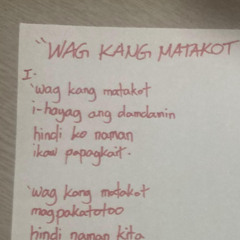 "WAG KANG MATAKOT
I.
'wag kang matakot
i-hayag ang damdamin
hindi ko naman
ikaw papagkait.
'wag kang matakot
magpakatotoo
hindi naman kita